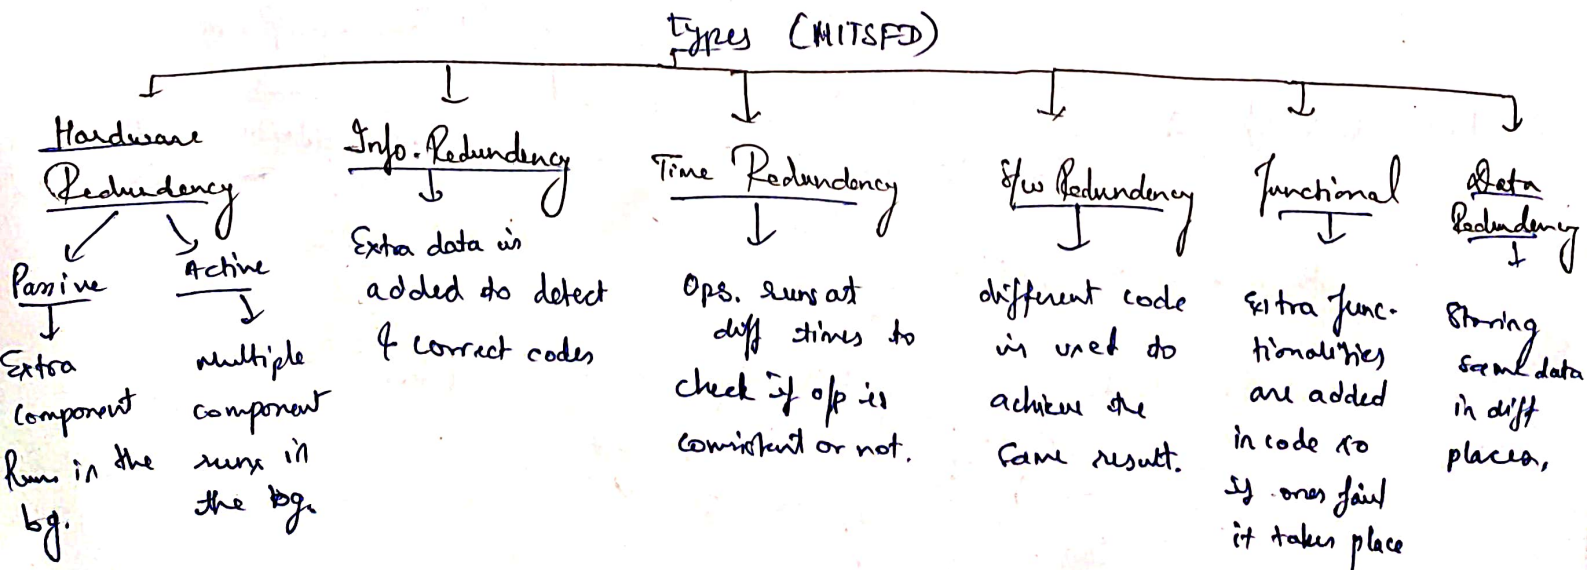 types (HITSFD)
Hardware
Redundancy
Passive
Extra
component
Runs in the
bg.
Active
Multiple
component
runs in
the bg.
Info. Redundency
Extra data is
added to detect
& correct codes
Time Redundency
Ops. runs at
diff times to
check if o/p is
consistent or not.
S/w Redundency
different code
is used to
achieve the
same result.
Functional
Extra func-
tionalities
are added
in code so
if ones fail
it takes place
Data
Redundency
Storing
same data
in diff
places.